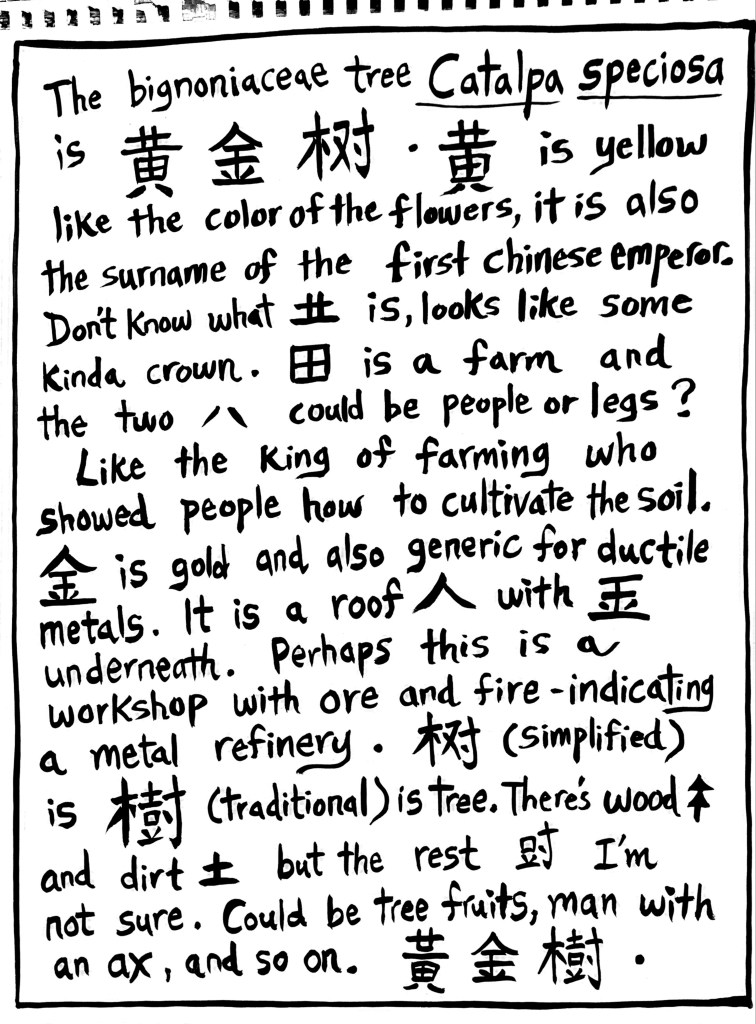 The bignoniaceae tree Catalpa speciosa
is 黃金树. 黃 is yellow
like the color of the flowers, it is also
the surname of the first chinese emperor.
Don't know what 龷 is, looks like some
kinda crown. 田 is a farm and
the two 八 could be people or legs?
Like the King of farming who
showed people how to cultivate the soil.
金 is gold and also generic for ductile
metals. It is a roof 人 with �玉
underneath. Perhaps this is a
workshop with ore and fire-indicating
a metal refinery. 树 (simplified)
is 樹 (traditional) is tree. There's wood 木
and dirt 土 but the rest I'm
not sure. Could be tree fruits, man with
an ax, and so on. 黃金樹.